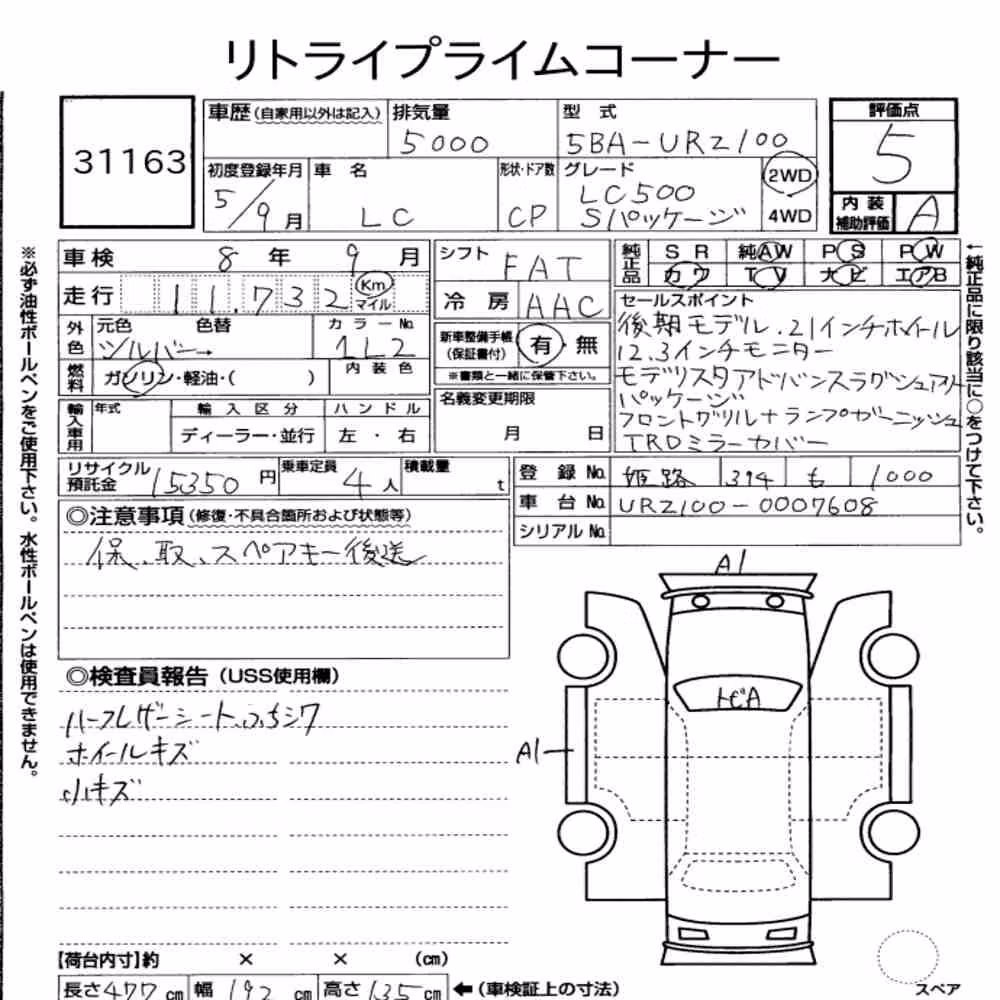 リトライプライムコーナー
31163
車歴(自家用以外は記入)
排気量
5000
型 式
5BA-URZ100
評価点
5
初度登録年月
5/9月
車 名
LC
形状・ドア数
CP
グレード
LC500
Sパッケージ
2WD
4WD
内 装
補助評価
A
車検 8 年 9 月
走行 11,732 Km マイル
外色
元色 色替
シルバー→
カラーNo.
1L2
燃料
ガソリン・軽油・( )
内 装 色
輸入車用
年式
輸 入 区 分
ディーラー・並行
ハ ン ド ル
左 ・ 右
シフト FAT
冷 房 AAC
新車整備手帳
(保証書付)
有・無
※書類と一緒に保管下さい。
名義変更期限
月 日
純正品
S R 純AW P S P W
カ ワ T V ナ ビ エアB
セールスポイント
後期モデル.21インチホイール
12.3インチモニター
モデリスタアドバンスラグジュアリー
パッケージ
フロントグリル+ランプガーニッシュ
TRDミラーカバー
←純正品に限り該当に○をつけて下さい。
※必ず油性ボールペンをご使用下さい。水性ボールペンは使用できません。
リサイクル
預託金
15350 円
乗車定員
4 人
積載量
t
登 録 No. 姫路 394 も 1000
車 台 No. URZ100-0007608
シリアル No.
◎注意事項(修復・不具合箇所および状態等)
保、取、スペアキー後送
◎検査員報告(USS使用欄)
ハーフレザーシート、ふちシワ
ホイールキズ
小キズ
A1
トビA
A1
【荷台内寸】約 × × (cm)
長さ 477 cm 幅 192 cm 高さ 135 cm ←(車検証上の寸法)
スペア